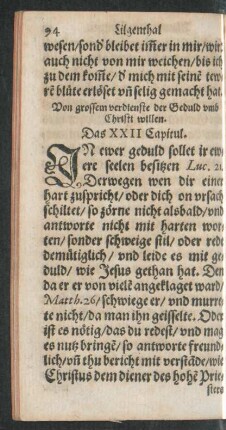 94 Lilgenthal
wesen/sond̾ bleibet im̃er in mir/wird
auch nicht von mir weichen/bis ich
zu dem kom̃e/d̾ mich mit seinẽ tew=
rẽ blůte erlöset vñ selig gemacht hat.
Von grossem verdienste der Gedult vmb
Christi willen.
Das XXII Capitul.
IN ewer geduld sollet ir ew=
ere seelen besitzen Luc. 21.
Derwegen wen dir einer
hart zuspricht/oder dich on vrsach
schiltet/so zörne nicht alsbald/vnd
antworte nicht mit harten wor=
ten/sonder schweige stil/oder rede
demütiglich/vnd leide es mit ge=
duld/wie Jesus gethan hat. Den
da er er von vielẽ angeklaget ward/
Matth.26/schwiege er/vnd murre=
te nicht/da man ihn geisselte. Oder
ist es nötig/das du redest/vnd mag
es nutz bringẽ/so antworte freund=
lich/vñ thu bericht mit verstãde/wie
Christus dem diener des hohẽ Prie=
sters